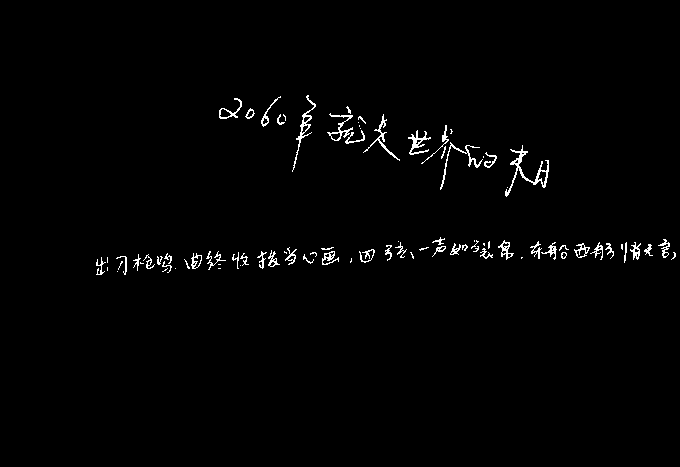 2060年就是世界的末日
出刀枪鸣.曲终收拨当心画,四弦一声如裂帛.东船西舫悄无言,